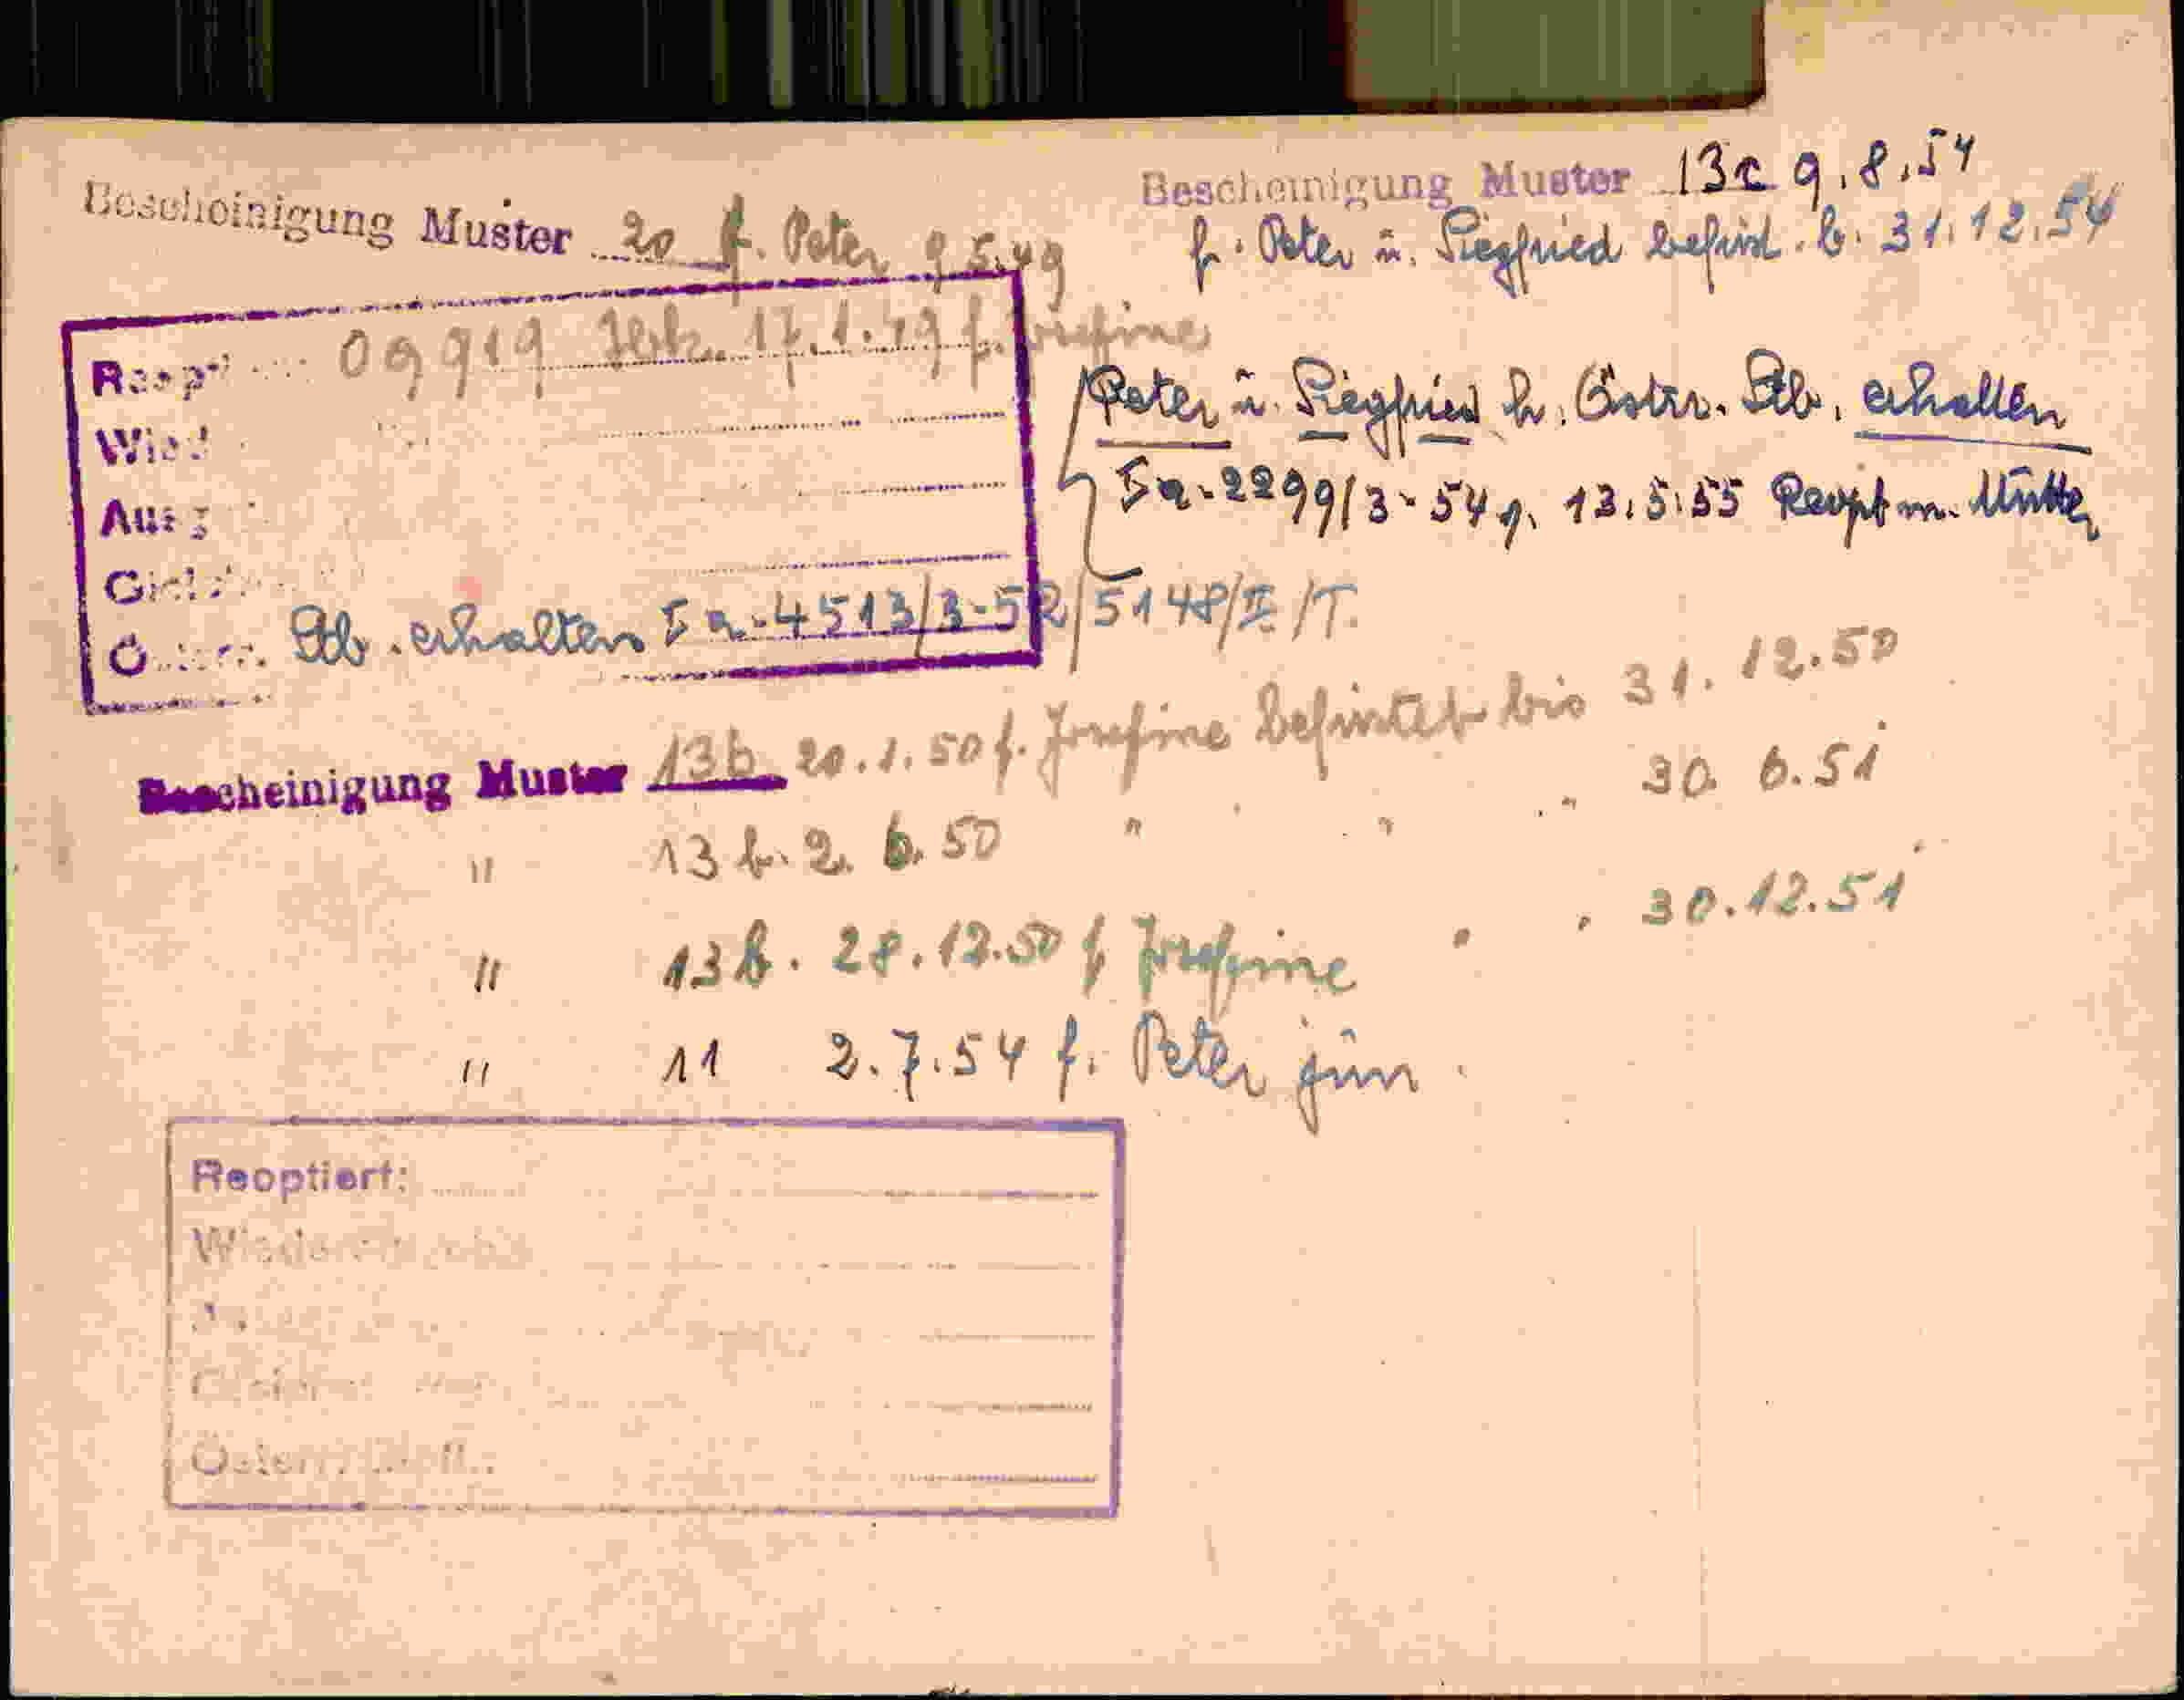 Bescheinigung Muster 20 f. Peter 9.5.49
Bescheinigung Muster 13c 9.8.54
f. Peter u. Siegfried befrist. b. 31.12.54
09919 17.1.49 f. Josefine
Peter u. Siegfried h. Östr. Stb. erhalten
Ia-2299/3-54 v. 13.5.55 Reopt m. Mutter
Stb. erhalten Ia-4513/3-52/5148/II/T.
Bescheinigung Muster 13b 20.1.50 f. Josefine befristet bis 31.12.50
" 13b. 2.6.50 " " " 30.6.51
" 13b. 28.12.50 f Josefine " " 30.12.51
" 11 2.7.54 f. Peter jun.
Reoptiert:
Österr.